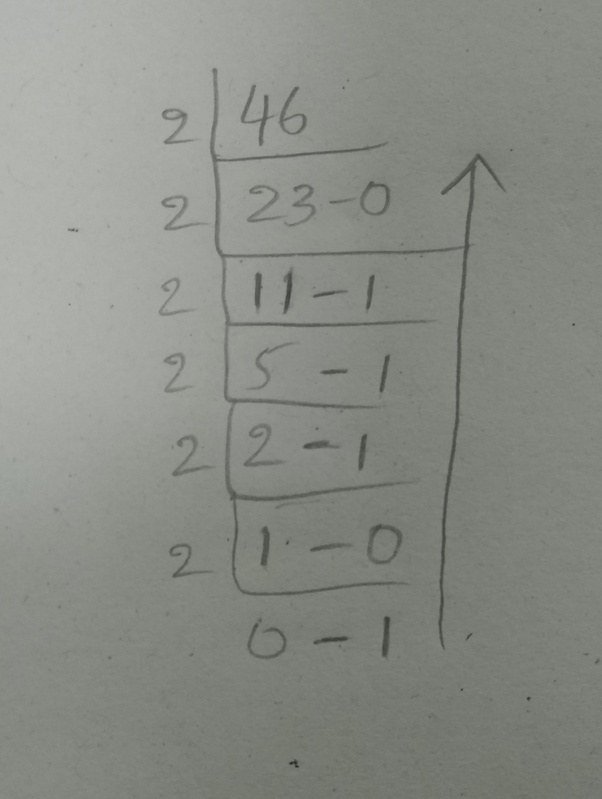 2 46
2 23-0
2 11-1
2 5-1
2 2-1
2 1-0
0-1